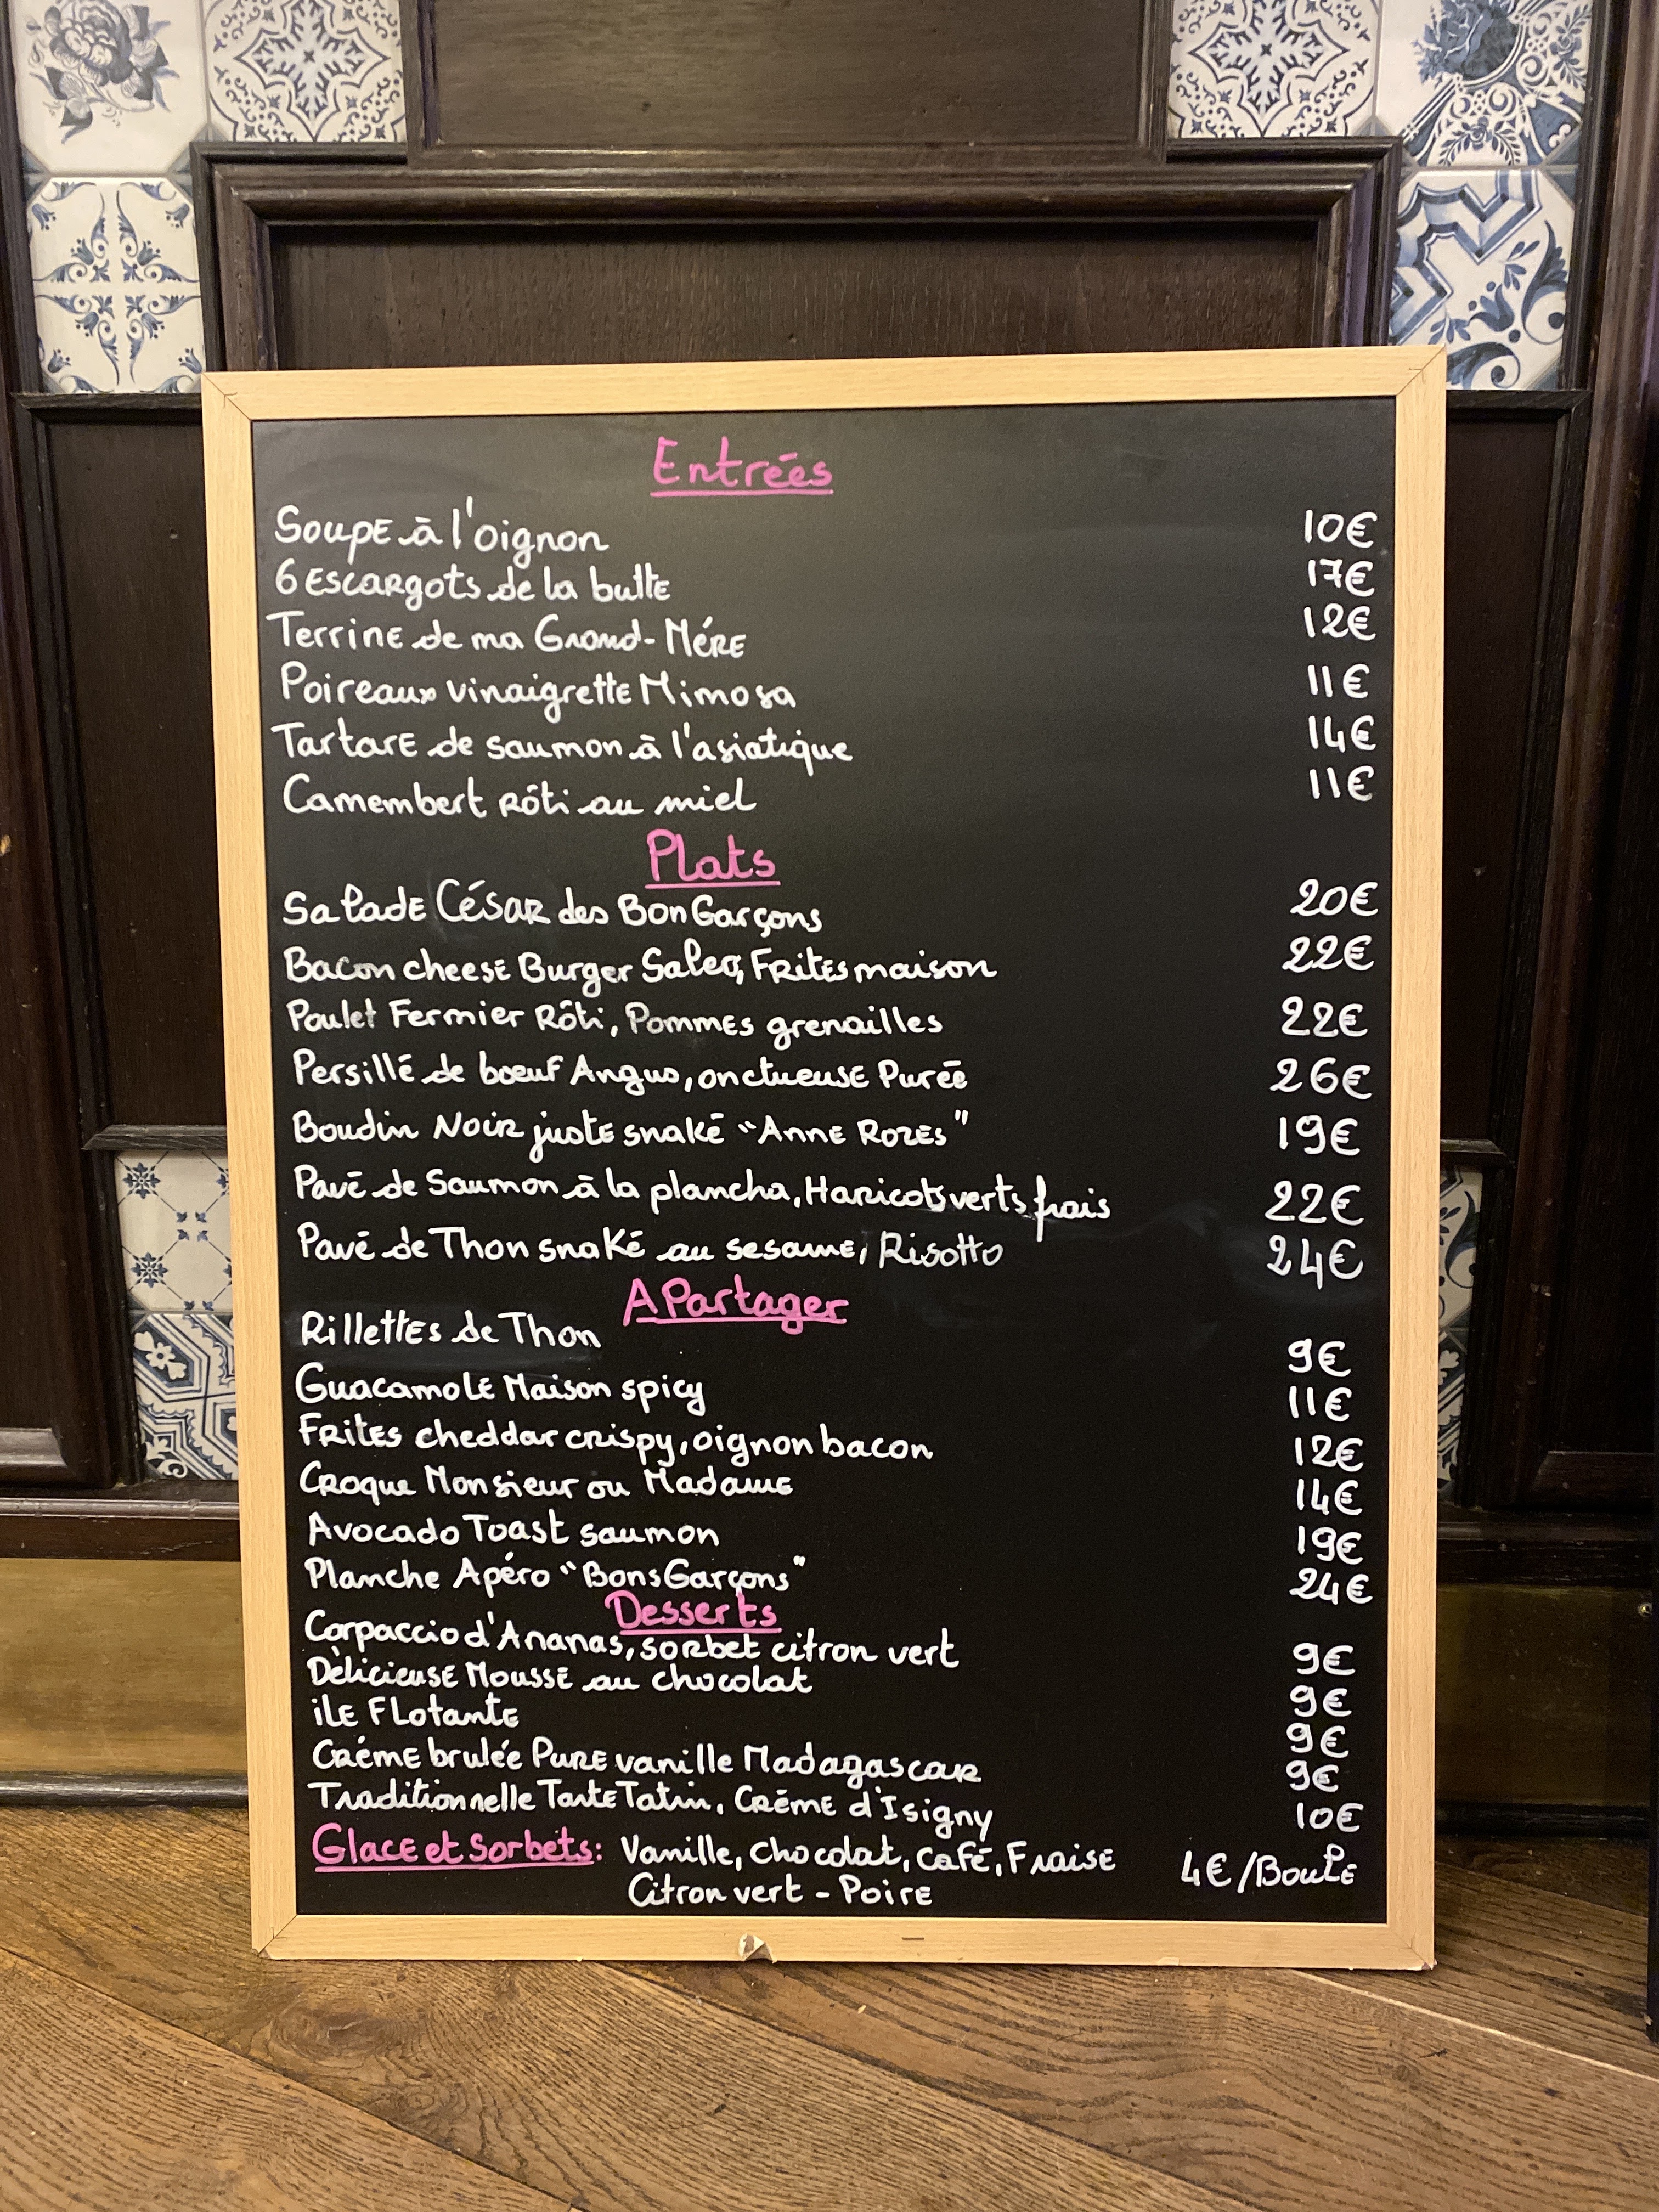 Entrées
Soupe à l'oignon 10€
6 Escargots de la butte 17€
Terrine de ma Grand-Mére 12€
Poireaux vinaigrette Mimosa 11€
Tartare de saumon à l'asiatique 14€
Camembert rôti au miel 11€
Plats
Salade César des Bon Garçons 20€
Bacon cheese Burger Salers, Frites maison 22€
Poulet Fermier Rôti, Pommes grenailles 22€
Persillé de bœuf Angus, onctueuse Purée 26€
Boudin Noir juste snaké "Anne Rozes" 19€
Pavé de Saumon à la plancha, Haricots verts frais 22€
Pavé de Thon snaké au sesame, Risotto 24€
A Partager
Rillettes de Thon 9€
Guacamole Maison spicy 11€
Frites cheddar crispy, oignon bacon 12€
Croque Monsieur ou Madame 14€
Avocado Toast saumon 19€
Planche Apéro "Bons Garçons" 24€
Desserts
Carpaccio d'Ananas, sorbet citron vert 9€
Délicieuse Mousse au chocolat 9€
île Flotante 9€
Créme brulée Pure vanille Madagascar 9€
Traditionnelle Tarte Tatin, Crême d'Isigny 10€
Glace et Sorbets: Vanille, Chocolat, Café, Fraise 4€/Boule
Citron vert - Poire